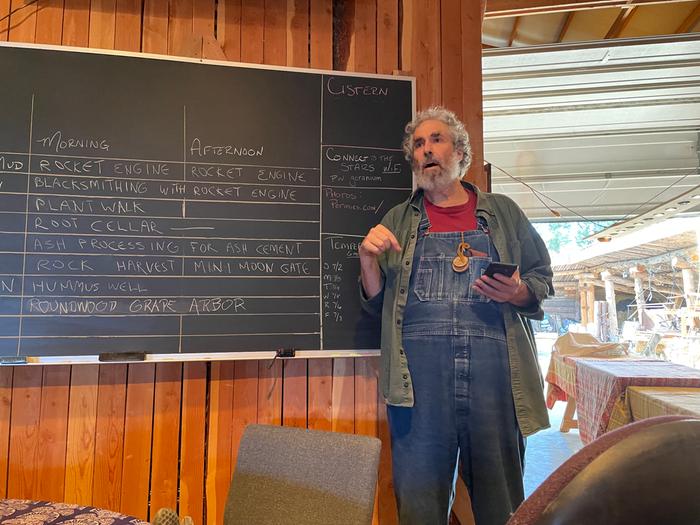 CISTERN
MORNING AFTERNOON
MUD ROCKET ENGINE ROCKET ENGINE
BLACKSMITHING WITH ROCKET ENGINE
PLANT WALK
ROOT CELLAR
ASH PROCESSING FOR ASH CEMENT
ROCK HARVEST MINI MOON GATE
N HUMMUS WELL
ROUNDWOOD GRAPE ARBOR
CONNECT TO THE
STARS WIFI
PW geranium
PHOTOS:
PERMIES.COM/
TEMPER
S 7/2
M 7/3
T 7/4
W 7/5
R 7/6